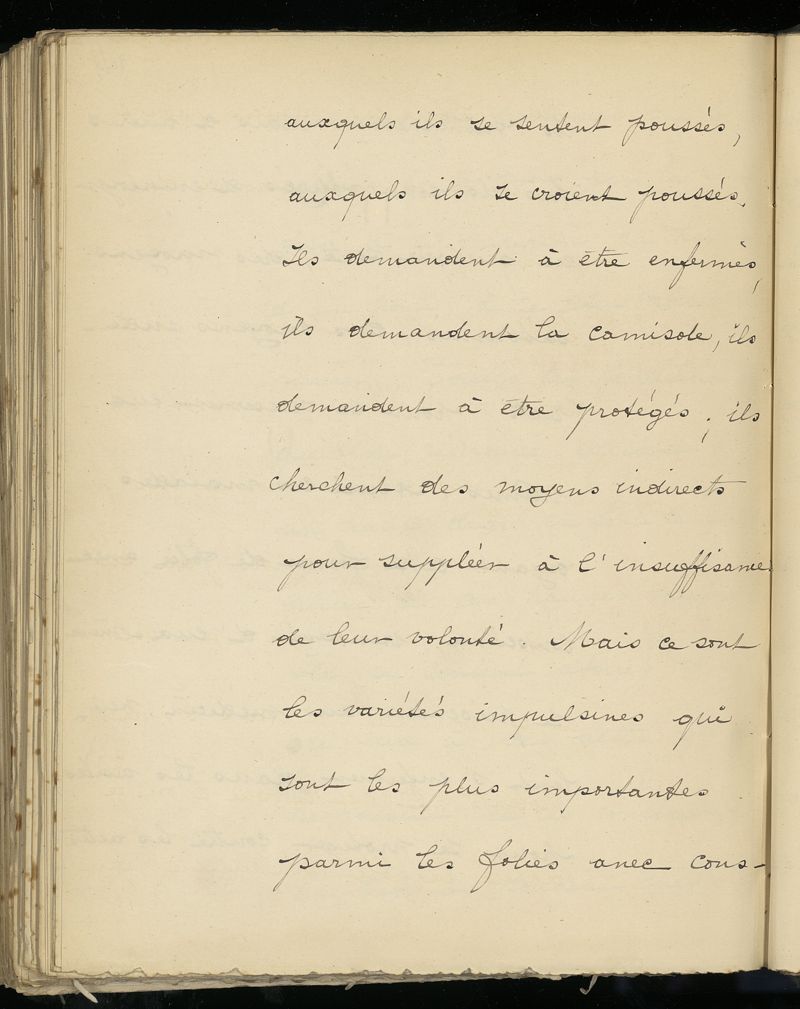 auxquels ils se sentent poussés,
auxquels ils se croient poussés.
Ils demandent à être enfermés,
ils demandent la camisole, ils
demandent à être protégés ; ils
cherchent des moyens indirects
pour suppléer à l'insuffisance
de leur volonté. Mais ce sont
les variétés impulsives qui
sont les plus importantes
parmi les folies avec cons-